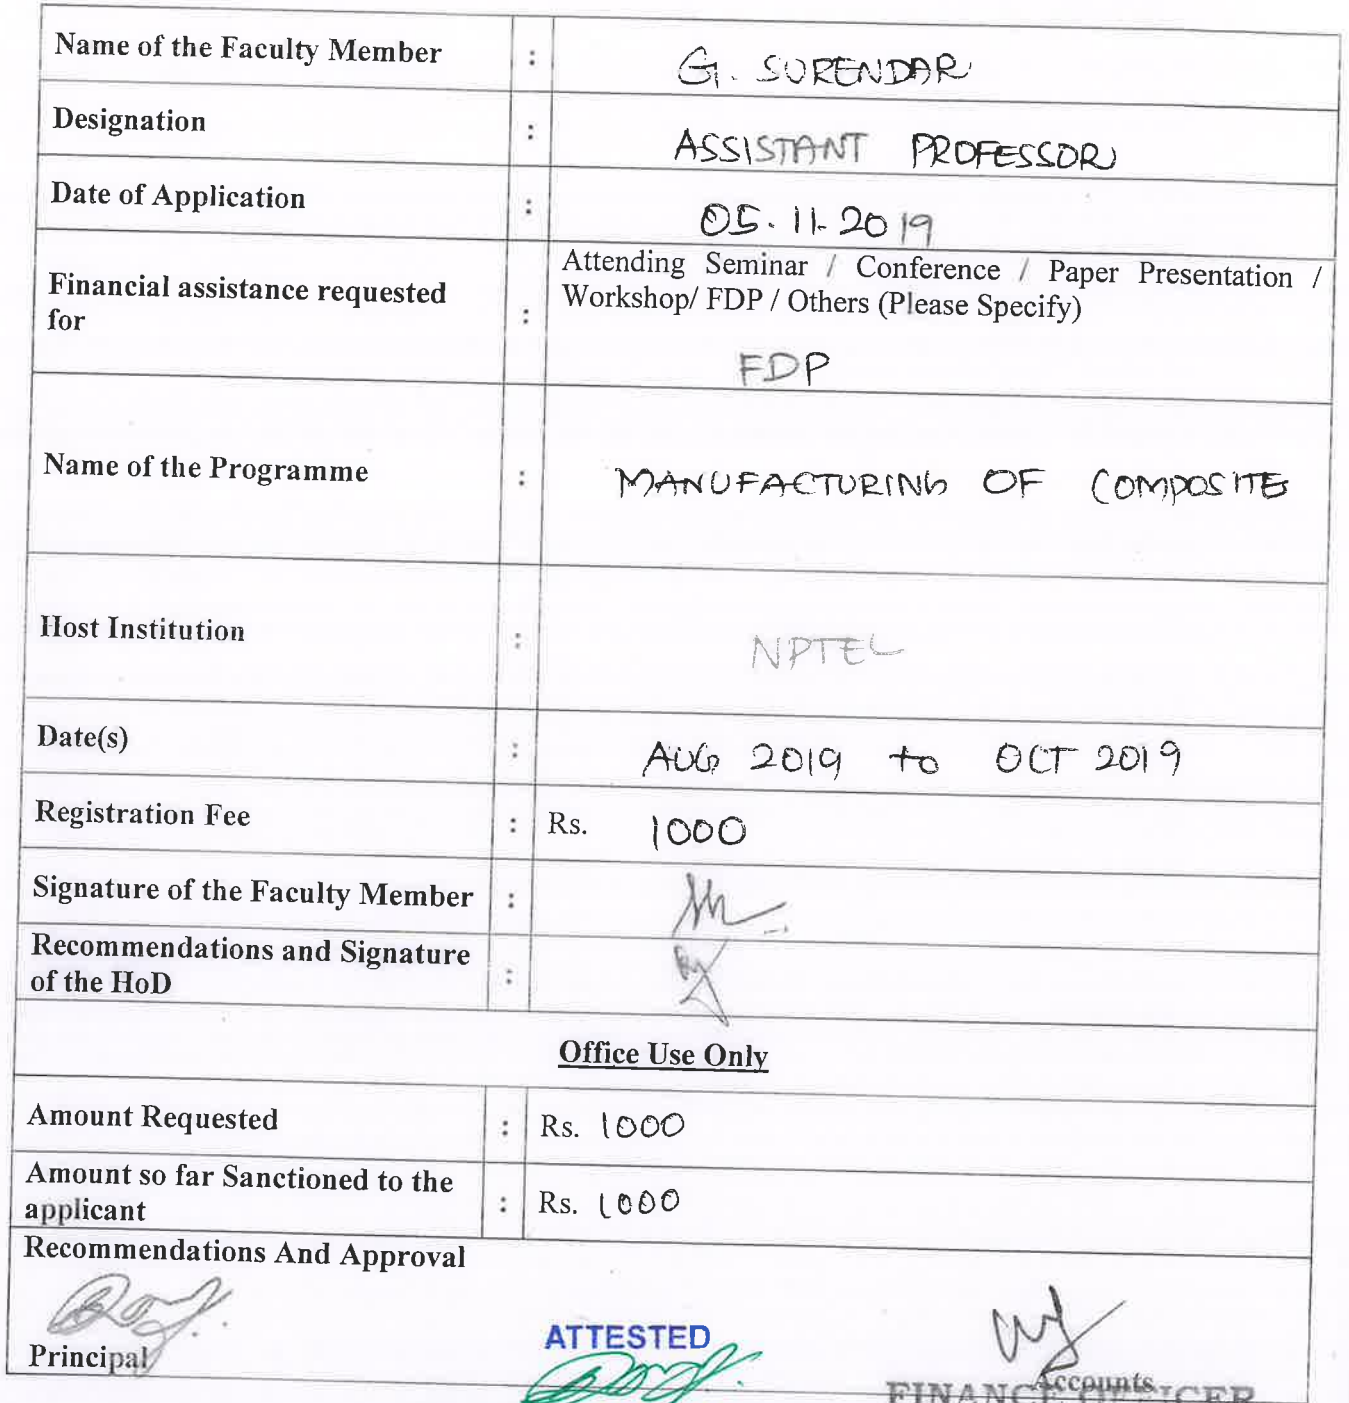 Name of the Faculty Member : G. SURENDAR
Designation : ASSISTANT PROFESSOR
Date of Application : 05.11.2019
Financial assistance requested
for : Attending Seminar / Conference / Paper Presentation /
Workshop/ FDP / Others (Please Specify)
FDP
Name of the Programme : MANUFACTURING OF COMPOSITE
Host Institution : NPTEL
Date(s) : AUG 2019 to OCT 2019
Registration Fee : Rs. 1000
Signature of the Faculty Member :
Recommendations and Signature
of the HoD :
Office Use Only
Amount Requested : Rs. 1000
Amount so far Sanctioned to the
applicant : Rs. 1000
Recommendations And Approval
ATTESTED
Principal
Accounts
FINANCE OFFICER